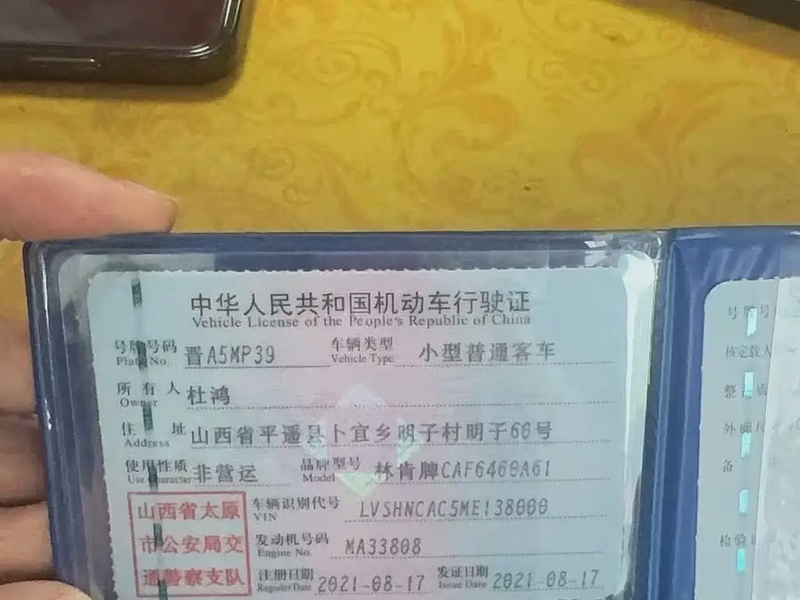 中华人民共和国机动车行驶证
Vehicle License of the People's Republic of China
号牌号码 晋A5MP39 车辆类型 小型普通客车
Plate No. Vehicle Type
所有人 杜鸿
Owner
住址 山西省平遥县卜宜乡明子村明子66号
Address
使用性质 非营运 品牌型号 林肯牌CAF6460A61
Use Character Model
山西省太原 车辆识别代号 LVSHNCAC5ME138000
VIN
市公安局交 发动机号码 MA33808
Engine No.
通警察支队 注册日期 2021-08-17 发证日期 2021-08-17
Register Date Issue Date
号牌号
核定载人
整 质
外廓尺
备
检验